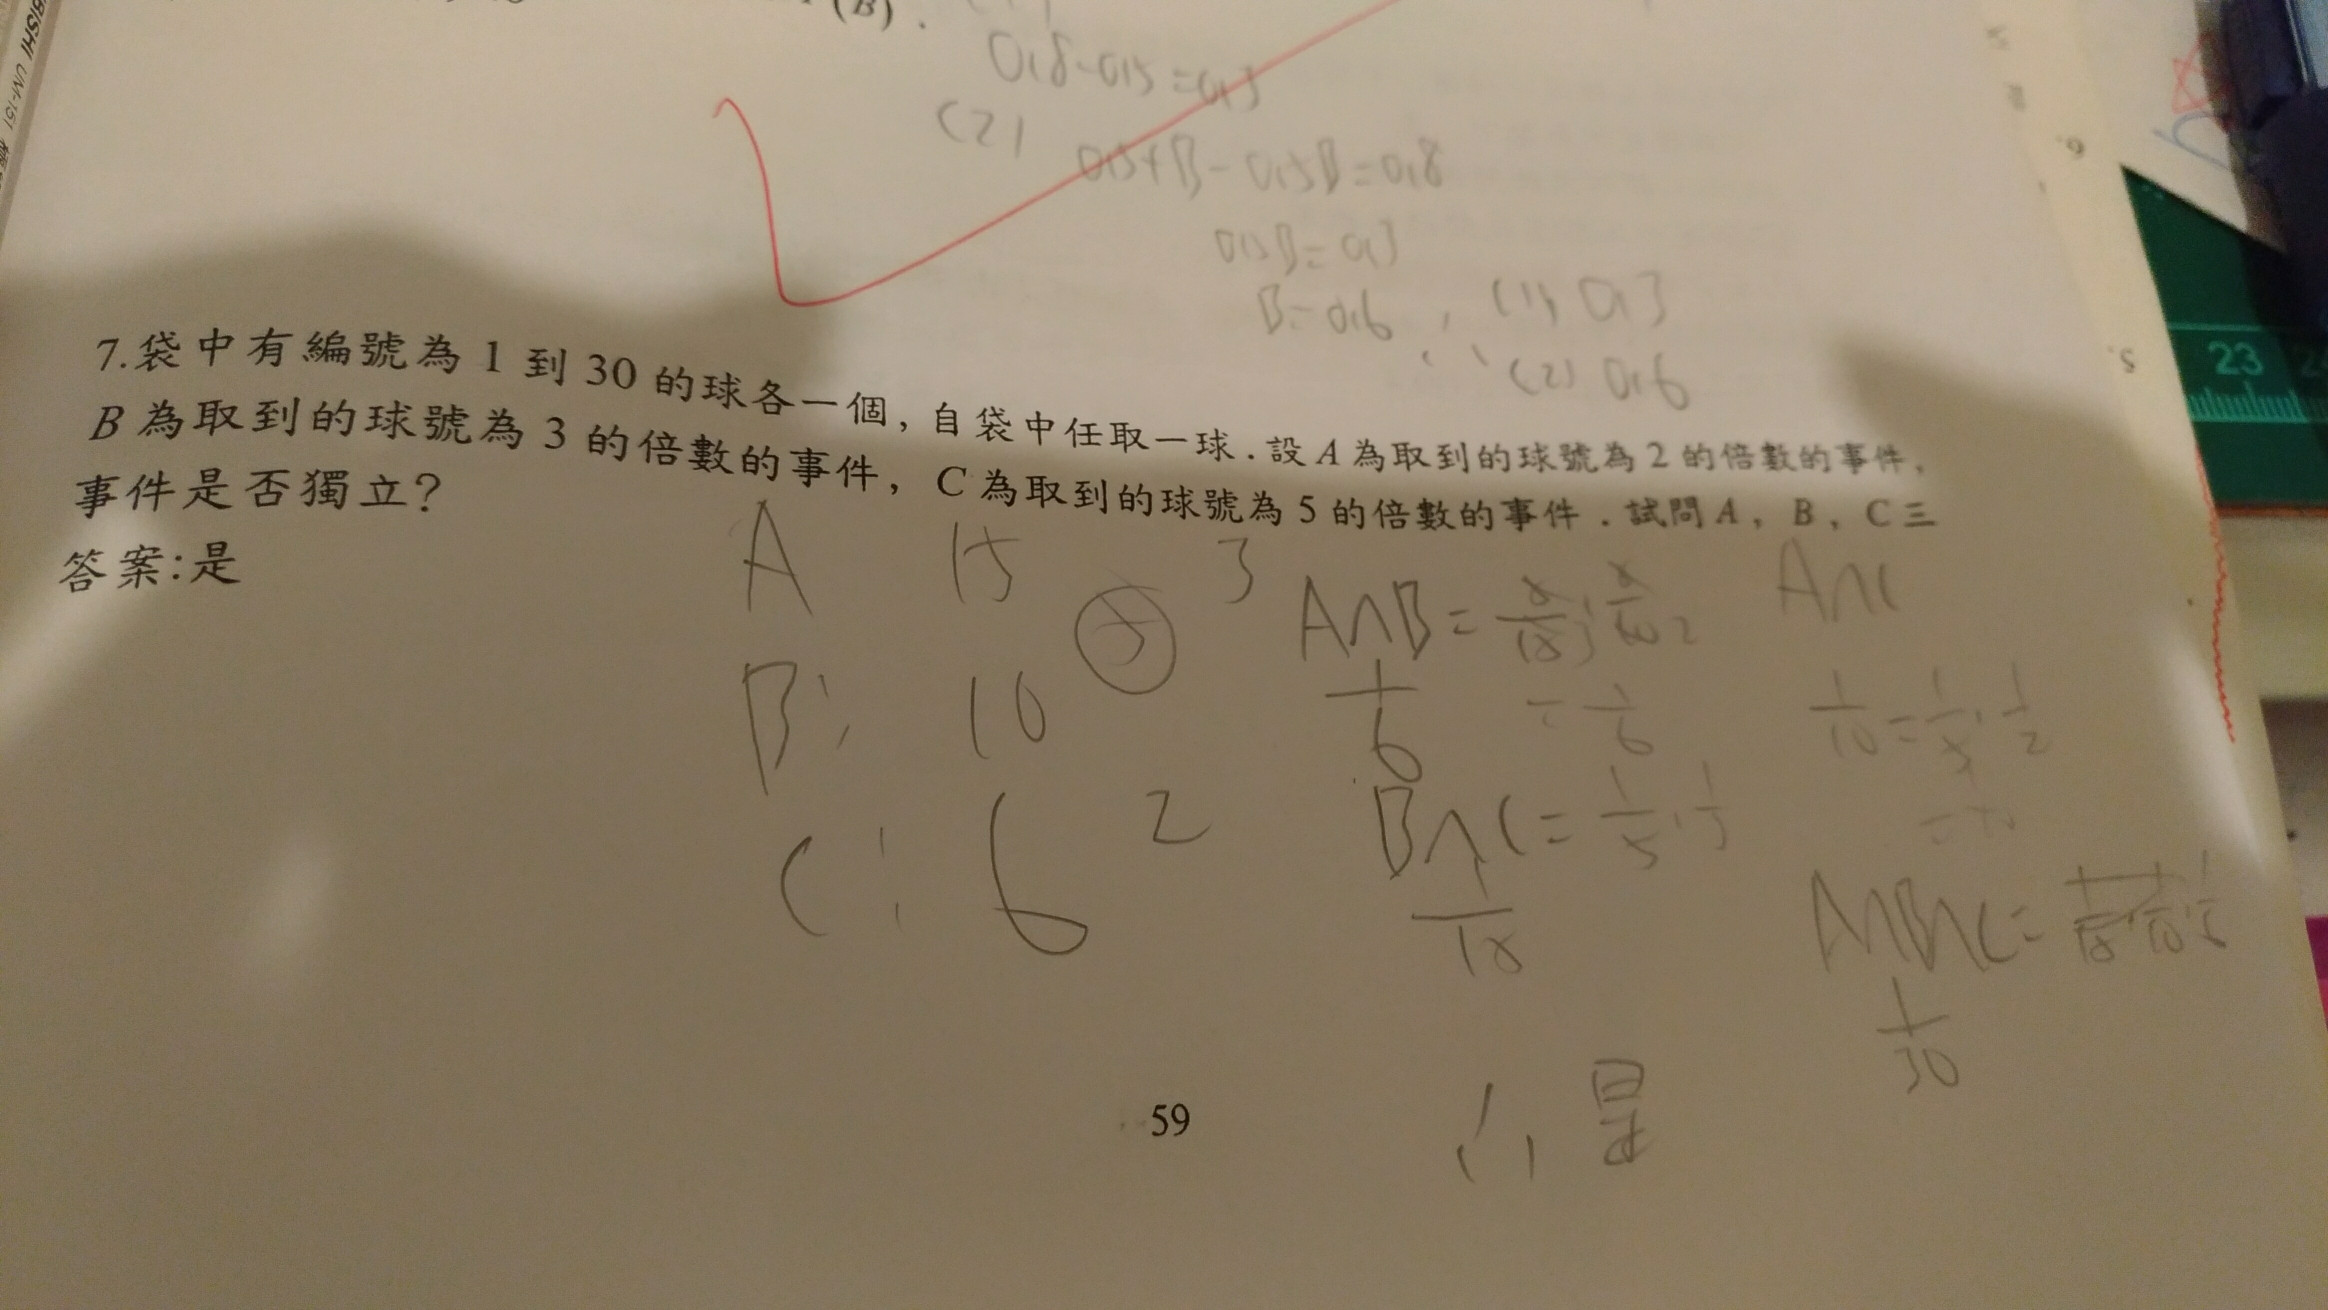 (B).
0.8-0.5=0.3
(2)
0.5+B-0.5B=0.8
0.5B=0.3
B=0.6
∴ (1) 0.3
(2) 0.6
7.袋中有編號為 1 到 30 的球各一個,自袋中任取一球.設 A 為取到的球號為 2 的倍數的事件,
B 為取到的球號為 3 的倍數的事件, C 為取到的球號為 5 的倍數的事件.試問 A, B, C 三
事件是否獨立?
答案:是
A 15 5 3
B: 10
C: 6 2
A∩B=
1/6
=1/6
B∩C=1/5·1/3
1/15
A∩C
1/10=1/5·1/2
A∩B∩C=
1/30
∴是
59
23
UM-151
6.
5.